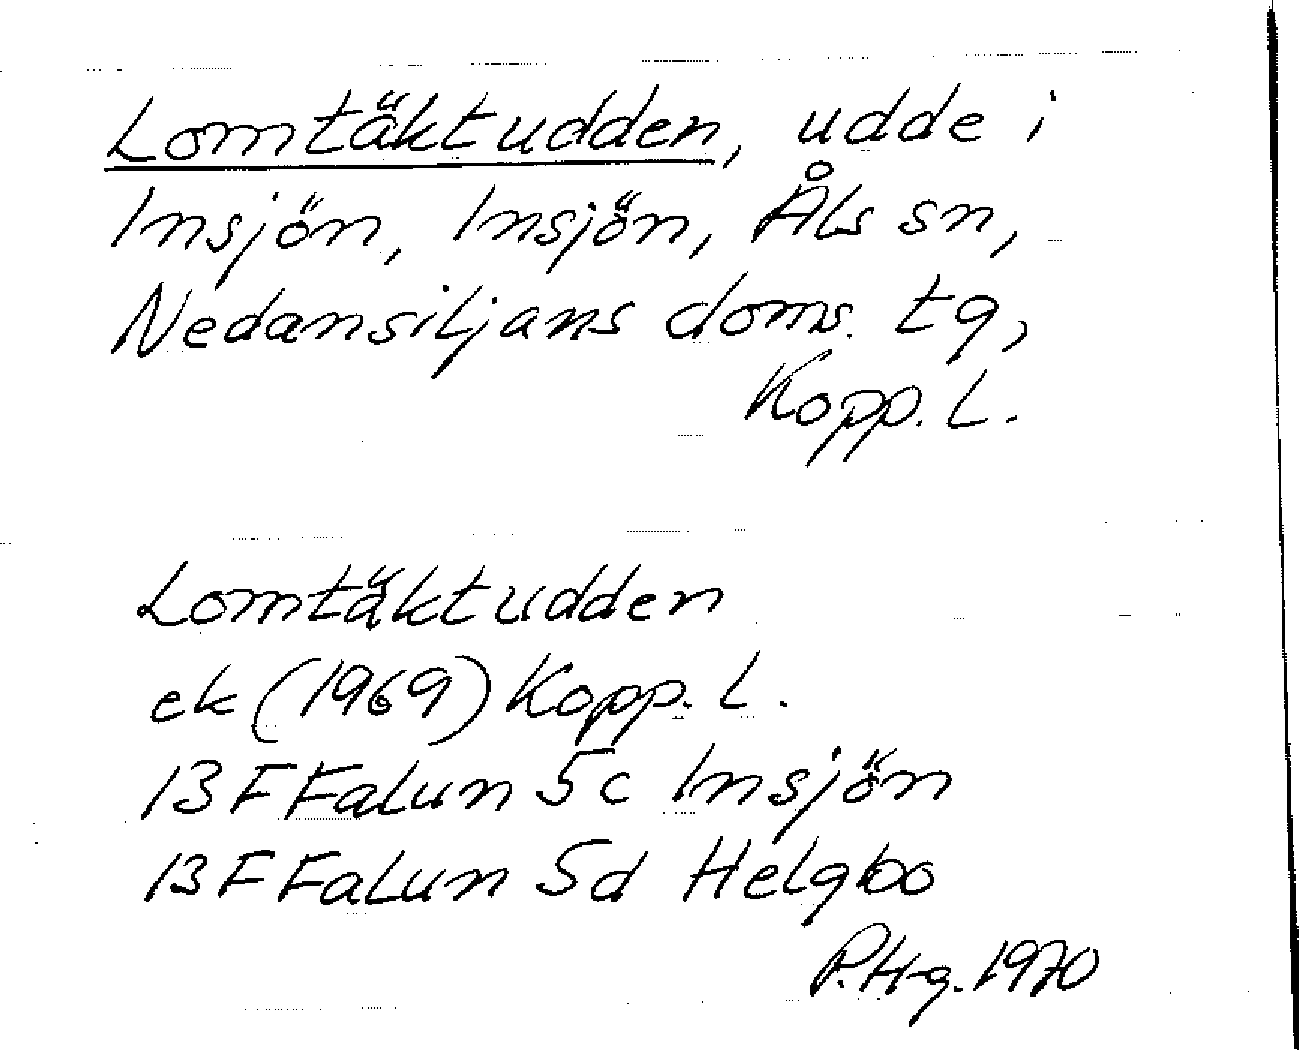 Lomtäktudden, udde i
Insjön, Insjön, Åls sn,
Nedansiljans doms. tg,
Kopp. L.
Lomtäktudden
ek (1969) Kopp. L.
13 F Falun 5c Insjön
13 F Falun 5d Helgbo
P.Hg. 1970